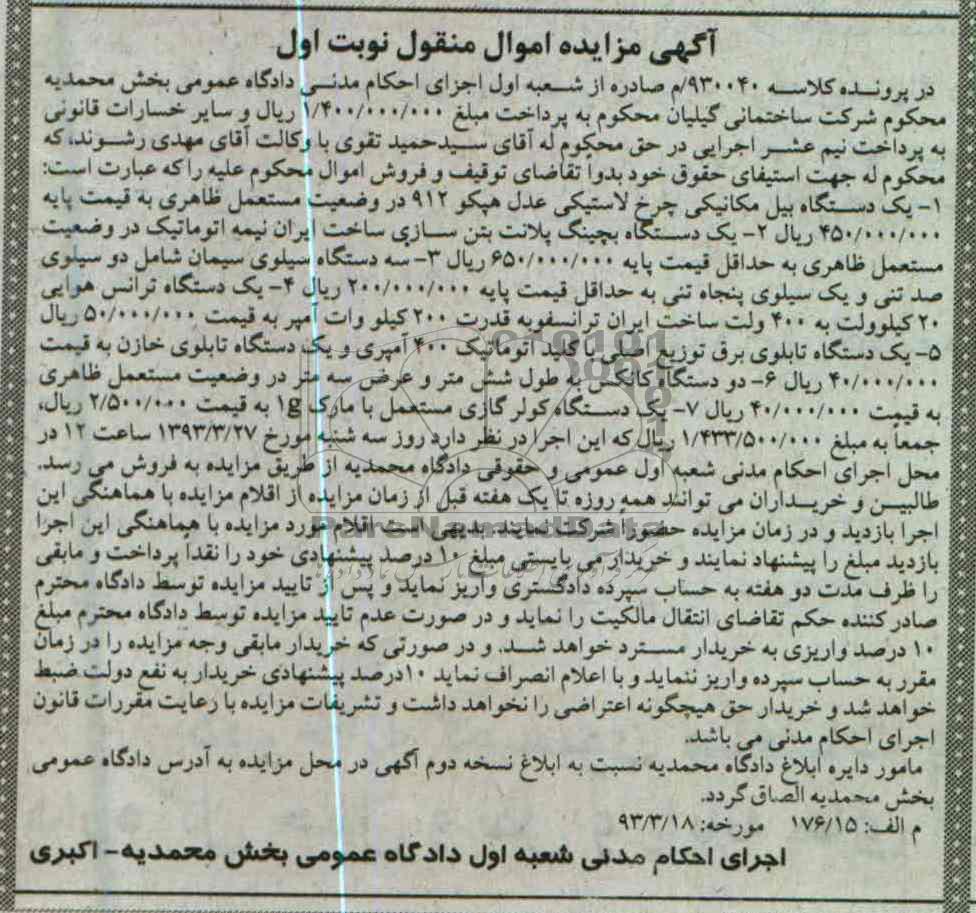 آگهی مزایده اموال منقول نوبت اول
در پرونده کلاسه ۹۳۰۰۴۰/م صادره از شعبه اول اجزای احکام مدنی دادگاه عمومی بخش محمدیه
محکوم شرکت ساختمانی گیلیان محکوم به پرداخت مبلغ ۱/۴۰۰/۰۰۰/۰۰۰ ریال و سایر خسارات قانونی
به پرداخت نیم عشر اجرایی در حق محکوم له آقای سیدحمید تقوی با وکالت آقای مهدی رشوند، که
محکوم له جهت استیفای حقوق خود بدوا تقاضای توقیف و فروش اموال محکوم علیه را که عبارت است:
۱- یک دستگاه بیل مکانیکی چرخ لاستیکی عدل هپکو ۹۱۲ در وضعیت مستعمل ظاهری به قیمت پایه
۴۵۰/۰۰۰/۰۰۰ ریال ۲- یک دستگاه بچینگ پلانت بتن سازی ساخت ایران نیمه اتوماتیک در وضعیت
مستعمل ظاهری به حداقل قیمت پایه ۶۵۰/۰۰۰/۰۰۰ ریال ۳- سه دستگاه سیلوی سیمان شامل دو سیلوی
صد تنی و یک سیلوی پنجاه تنی به حداقل قیمت پایه ۲۰۰/۰۰۰/۰۰۰ ریال ۴- یک دستگاه ترانس هوایی
۲۰ کیلوولت به ۴۰۰ ولت ساخت ایران ترانسفوبه قدرت ۲۰۰ کیلو وات آمپر به قیمت ۵۰/۰۰۰/۰۰۰ ریال
۵- یک دستگاه تابلوی برق توزیع اصلی با کلید اتوماتیک ۴۰۰ آمپری و یک دستگاه تابلوی خازن به قیمت
۴۰/۰۰۰/۰۰۰ ریال ۶- دو دستگاه کانکس به طول شش متر و عرض سه متر در وضعیت مستعمل ظاهری
به قیمت ۴۰/۰۰۰/۰۰۰ ریال ۷- یک دستگاه کولر گازی مستعمل با مارک lg به قیمت ۲/۵۰۰/۰۰۰ ریال،
جمعاً به مبلغ ۱/۴۳۳/۵۰۰/۰۰۰ ریال که این اجرا در نظر دارد روز سه شنبه مورخ ۱۳۹۳/۳/۲۷ ساعت ۱۲ در
محل اجرای احکام مدنی شعبه اول عمومی و حقوقی دادگاه محمدیه از طریق مزایده به فروش می رسد.
طالبین و خریداران می توانند همه روزه تا یک هفته قبل از زمان مزایده از اقلام مزایده با هماهنگی این
اجرا بازدید و در زمان مزایده حضورا شرکت نمایند بدیهی است اقلام مورد مزایده با هماهنگی این اجرا
بازدید مبلغ را پیشنهاد نمایند و خریدار می بایستی مبلغ ۱۰ درصد پیشنهادی خود را نقداً پرداخت و مابقی
را ظرف مدت دو هفته به حساب سپرده دادگستری واریز نماید و پس از تایید مزایده توسط دادگاه محترم
صادر کننده حکم تقاضای انتقال مالکیت را نماید و در صورت عدم تایید مزایده توسط دادگاه محترم مبلغ
۱۰ درصد واریزی به خریدار مسترد خواهد شد. و در صورتی که خریدار مابقی وجه مزایده را در زمان
مقرر به حساب سپرده واریز ننماید و با اعلام انصراف نماید ۱۰درصد پیشنهادی خریدار به نفع دولت ضبط
خواهد شد و خریدار حق هیچگونه اعتراضی را نخواهد داشت و تشریفات مزایده با رعایت مقررات قانون
اجرای احکام مدنی می باشد.
مامور دایره ابلاغ دادگاه محمدیه نسبت به ابلاغ نسخه دوم آگهی در محل مزایده به آدرس دادگاه عمومی
بخش محمدیه الصاق گردد.
م الف: ۱۷۶/۱۵ مورخه: ۹۳/۳/۱۸
اجرای احکام مدنی شعبه اول دادگاه عمومی بخش محمدیه- اکبری
ParsNamadData